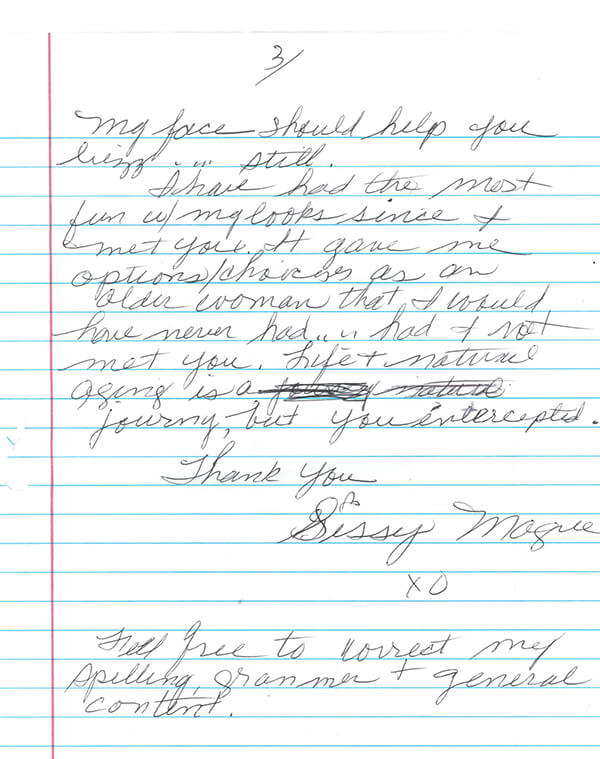 3/
My face should help you
bizz .... still.
I have had the most
fun w/ my looks since I
met you. It gave me
options/choices as an
older woman that I would
have never had .... had I not
met you. Life + natural
aging is a
journy, but you intercepted.
Thank You
Sissy
XO
Fell free to correct my
spelling, grammer + general
content.